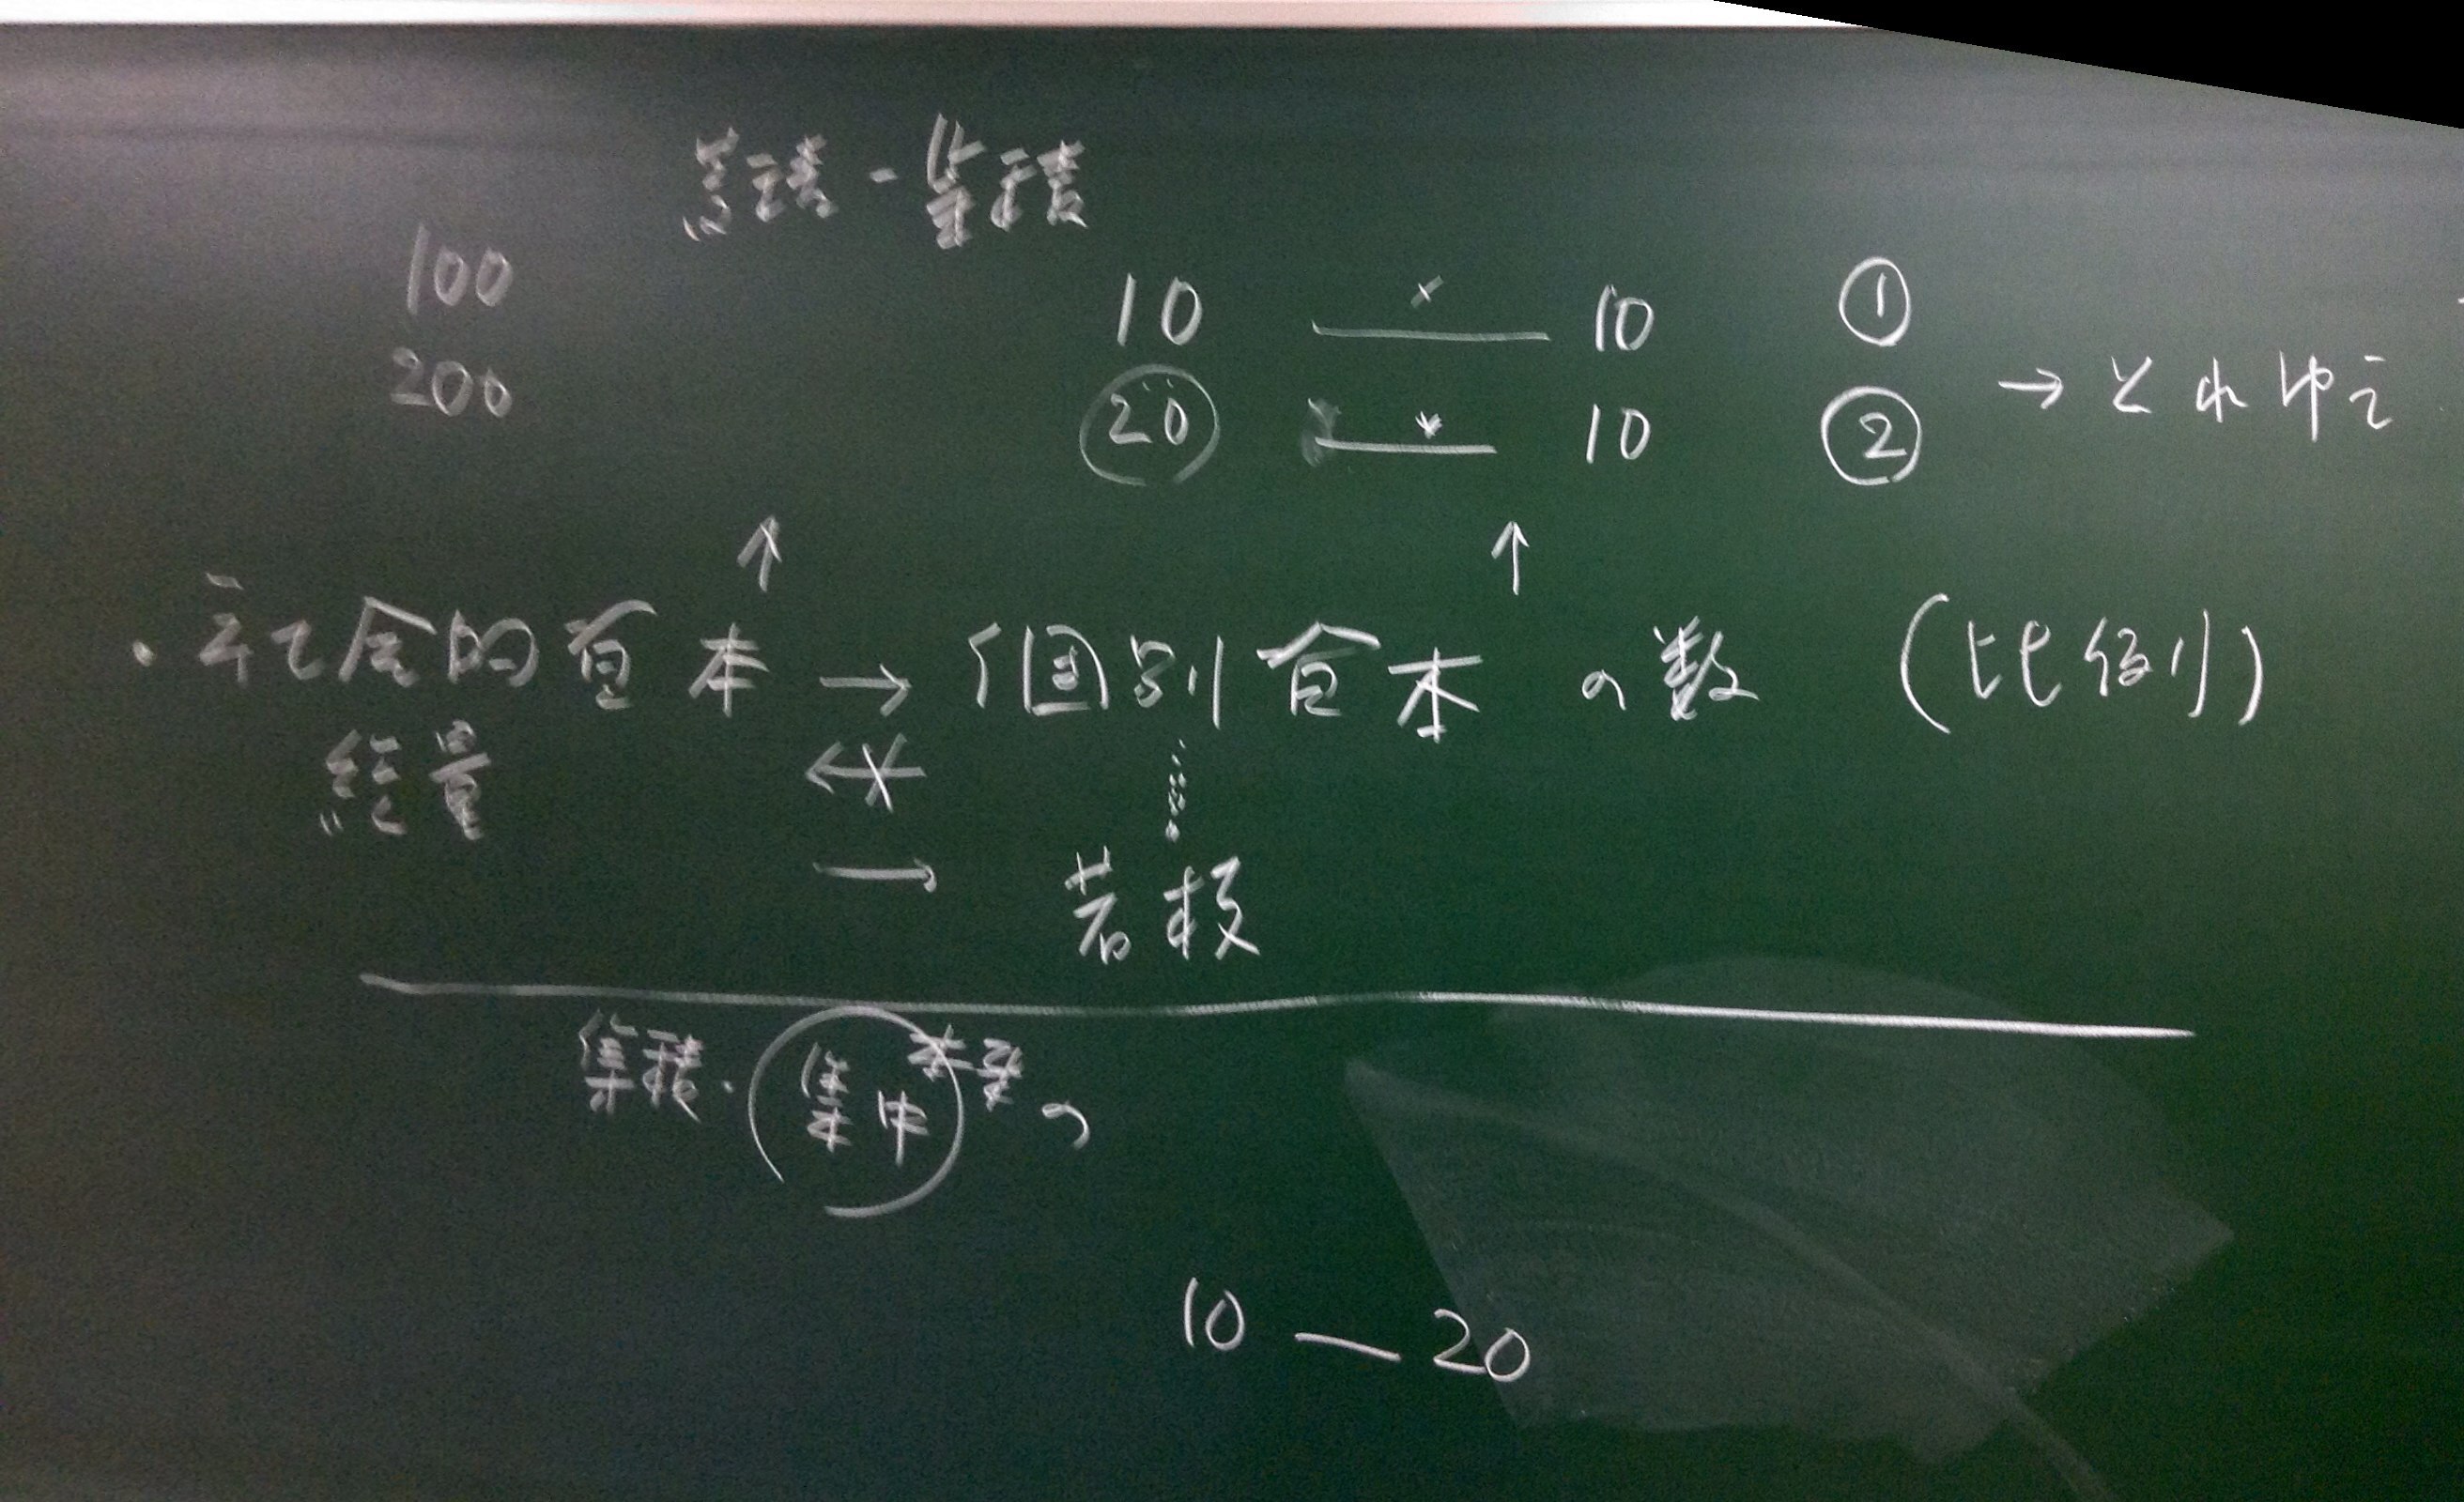 蓄積-集積
100 10 × 10 ①
200 20 × 10 ② → それゆえ
↑ ↑
・社会的資本 → 個別資本の数 (比例)
総量
→ 若枝
集積・集中 本来の
10 — 20